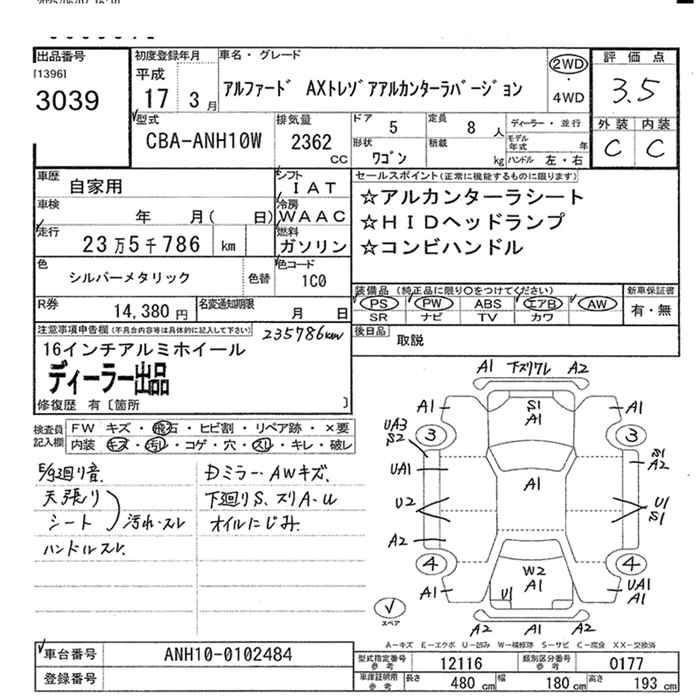 出品番号
[1396]
3039
初度登録年月
平成
17 3月
車名・グレード
アルファード AXトレゾアアルカンターラバージョン
2WD
・
4WD
評価点
3.5
外装 内装
C C
型式
CBA-ANH10W
排気量
2362 cc
ドア 5
定員 8 人
形状 ワゴン
積載 kg
ディーラー・並行
モデル年式 年
ハンドル 左・右
車歴 自家用
シフト IAT
車検 年 月( 日)
冷房 WAAC
走行 23万5千786 km
燃料 ガソリン
色 シルバーメタリック 色替
色コード 1C0
R券 14,380円
名変通知期限 月 日
セールスポイント(正常に機能するものに限ります)
☆アルカンターラシート
☆HIDヘッドランプ
☆コンビハンドル
装備品(純正品に限り○をつけてください)
PS PW ABS エアB AW
SR ナビ TV カワ
新車保証書
有・無
後日品 取説
注意事項申告欄(不具合内容等は具体的に記入して下さい)
235786km
16インチアルミホイール
ディーラー出品
修復歴 有〔箇所 〕
検査員記入欄
FW キズ・飛石・ヒビ割・リペア跡・×要
内装 キズ・汚れ・コゲ・穴・スレ・キレ・破レ
天張り
シート
汚れ・スレ
ハンドルスレ
Dミラー・AWキズ
下廻りS、スリA-U
オイルにじみ
A1 下スリワレ A2
A1 S1 A1 A1
3 3
UA3 S2
UA1
S1 A2
A1
U2
U1 S1
A2
4 4
W2 A1
U1
A1
UA1 A1
A2 A1 A2
スペア
A-キズ E-エクボ U-凹み W-補修跡 S-サビ C-腐食 XX-交換済
車台番号 ANH10-0102484
登録番号
型式指定番号 参考 12116
類別区分番号 参考 0177
車庫証明用 参考 長さ 480cm 幅 180cm 高さ 193cm